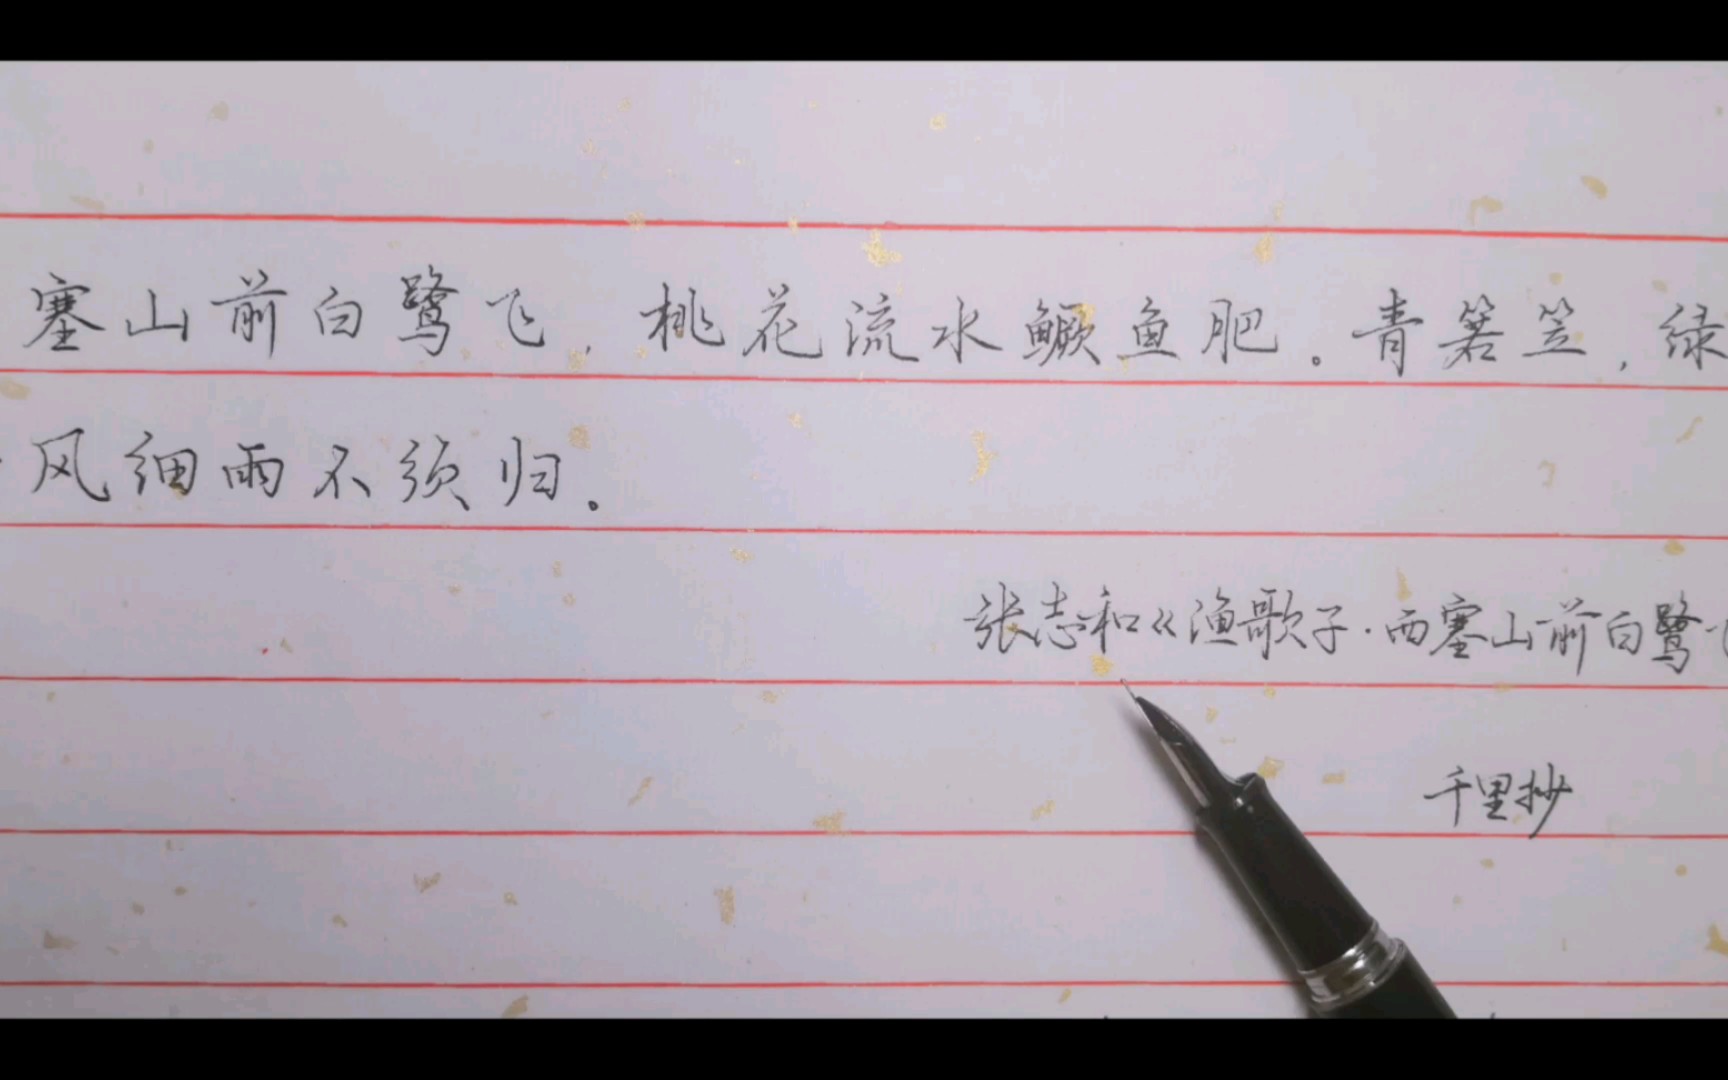 塞山前白鹭飞，桃花流水鳜鱼肥。青箬笠，绿
风细雨不须归。
张志和《渔歌子·西塞山前白鹭飞
千里抄